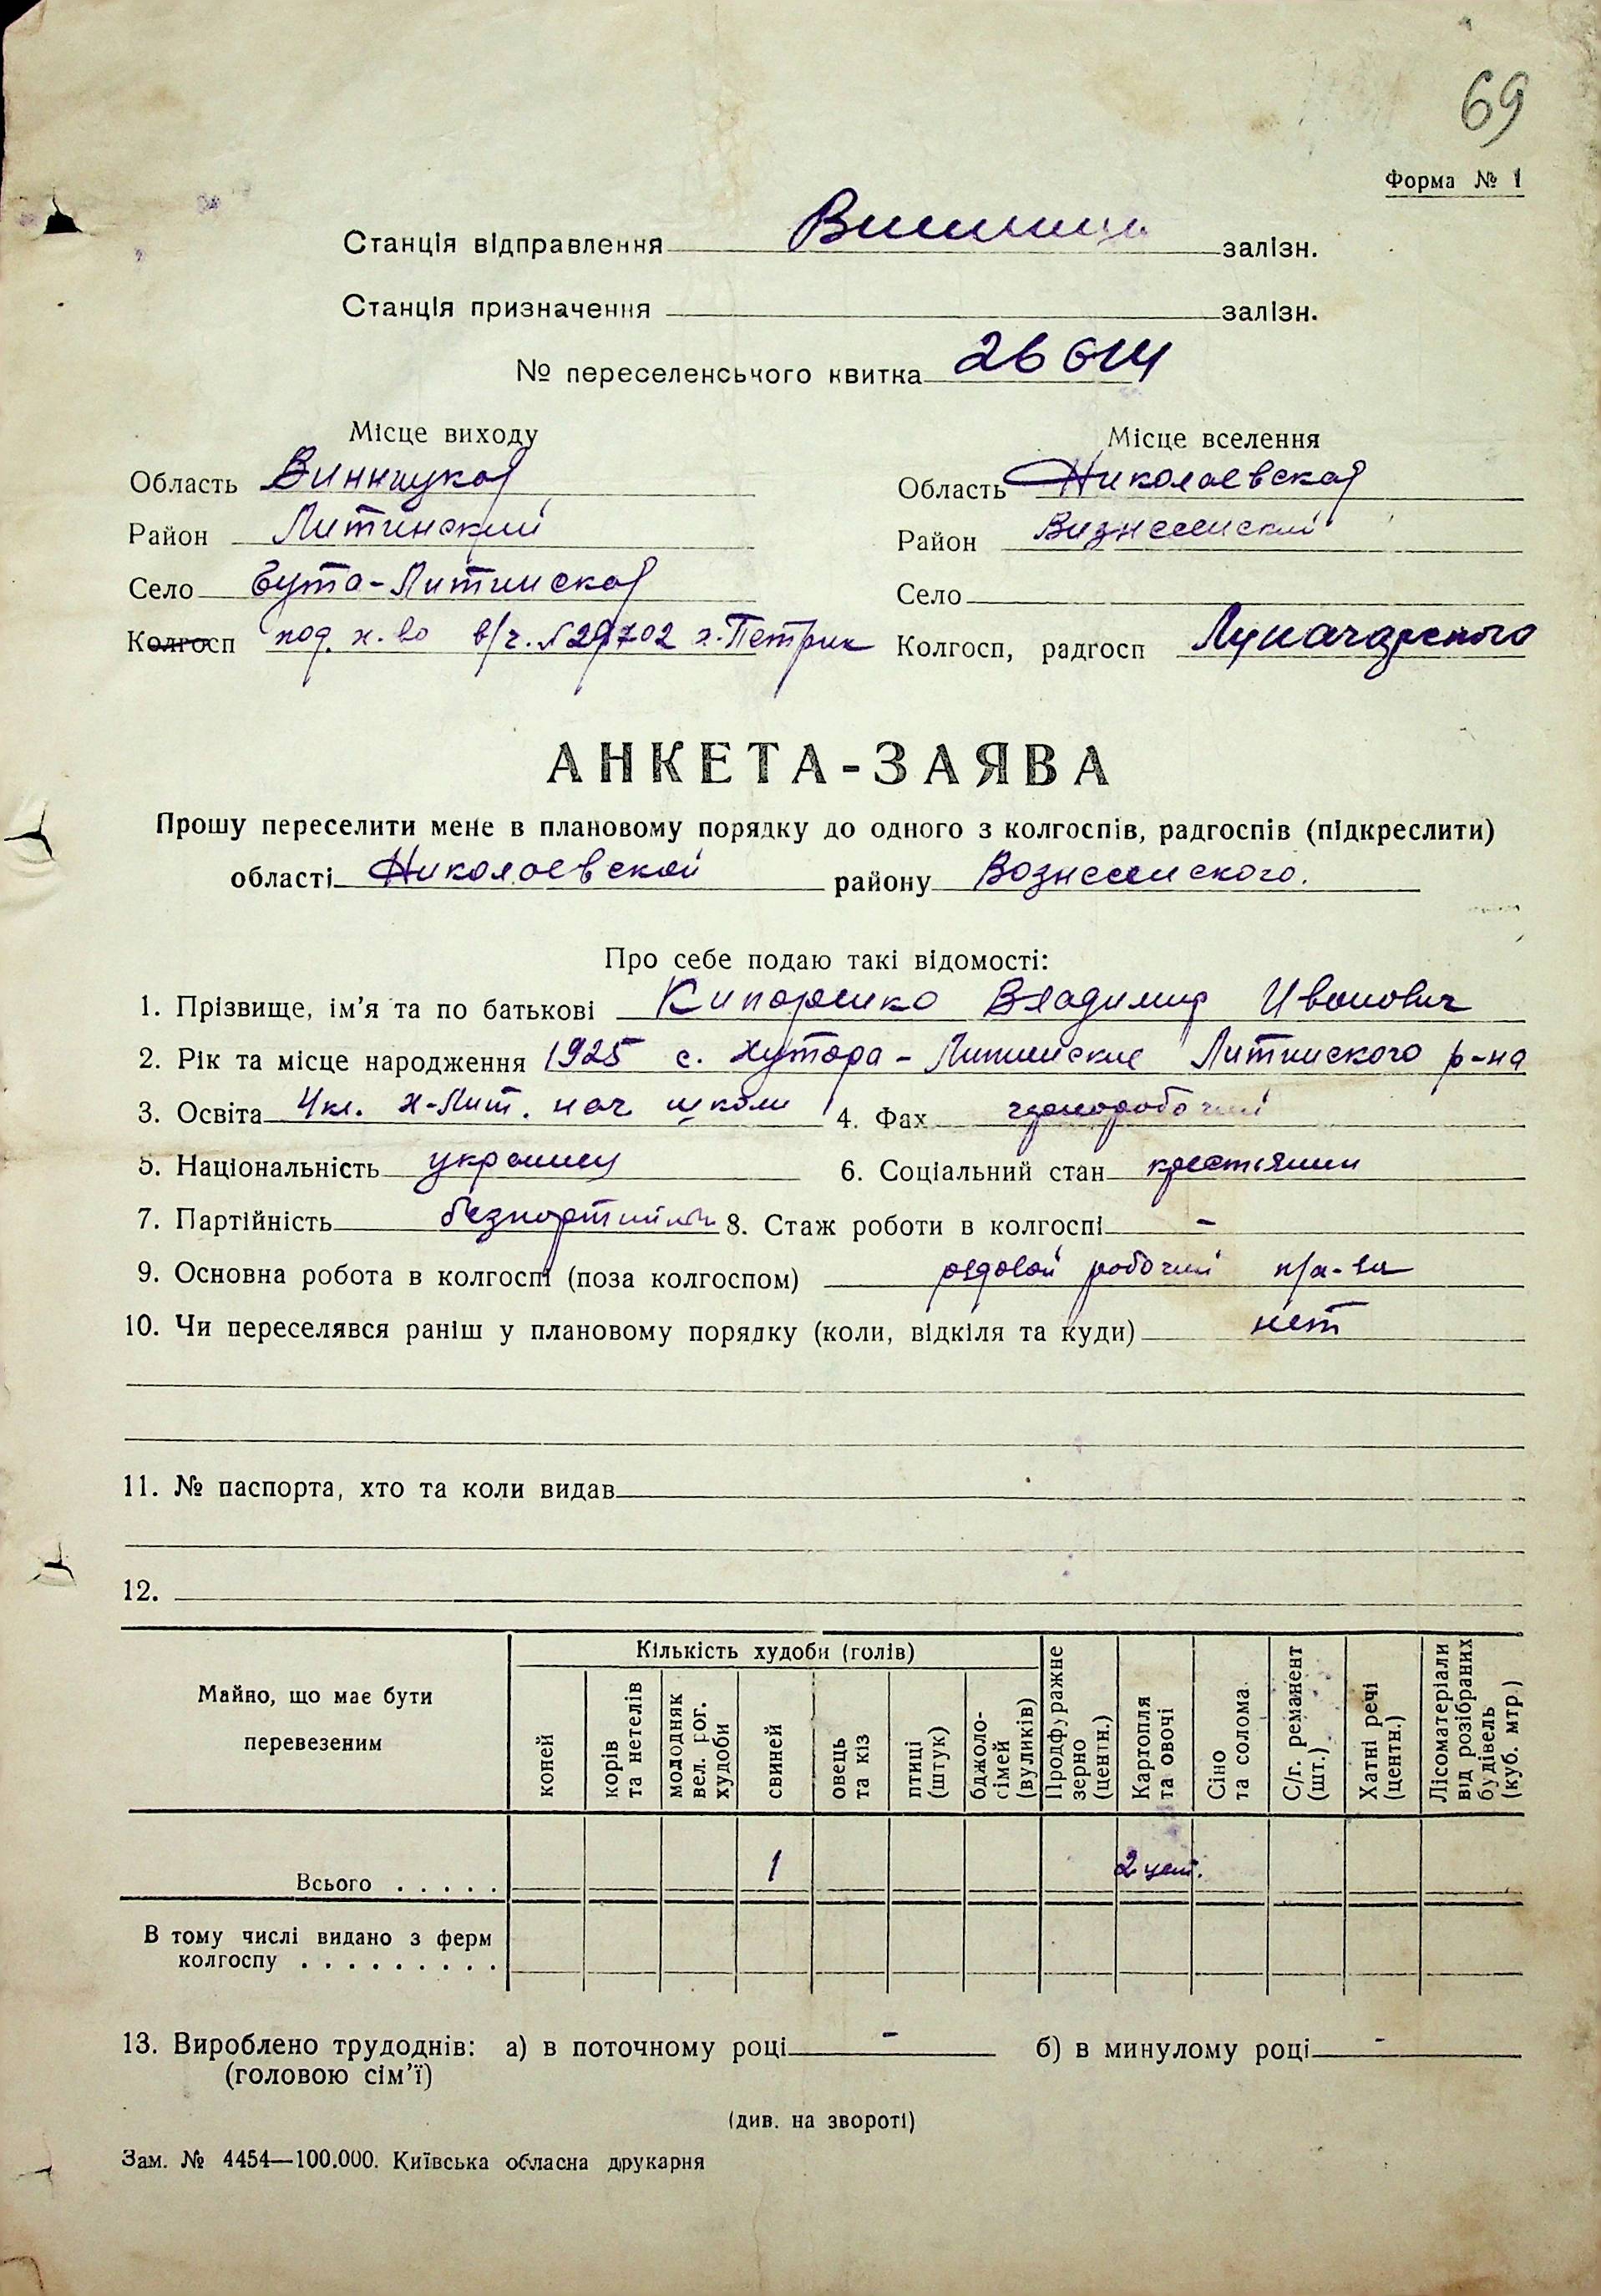 69
Форма № 1
Станція відправлення Винница залізн.
Станція призначення залізн.
№ переселенського квитка
Місце виходу
Місце вселення
Область Винницкая
Область Николаевская
Район Литинский
Район Вознесенский
Село Бута-Литинская
Село
Колгосп под. х-во в/ч. №29702 х. Петрик
Колгосп, радгосп Луначарского
АНКЕТА-ЗАЯВА
Прошу переселити мене в плановому порядку до одного з колгоспів, радгоспів (підкреслити)
області Николаевской району Вознесенского.
Про себе подаю такі відомості:
1. Прізвище, ім'я та по батькові Кипоренко Владимир Иванович
2. Рік та місце народження 1925 с. Хутора-Литинские Литинского р-на
3. Освіта 4 кл. Х-Лит. нач школи 4. Фах чернорабочий
5. Національність украинец 6. Соціальний стан крестьянин
7. Партійність безпартийный 8. Стаж роботи в колгоспі -
9. Основна робота в колгоспі (поза колгоспом) рядовой рабочий
10. Чи переселявся раніш у плановому порядку (коли, відкіля та куди) нет
11. № паспорта, хто та коли видав
12.
Майно, що має бути перевезеним
Кількість худоби (голів)
коней
корів та нетелів
молодняк вел. рог. худоби
свиней
овець та кіз
птиці (штук)
бджоло-сімей (вуликів)
Продфуражне зерно (центн.)
Картопля та овочі
Сіно та солома
С/г. реманент (шт.)
Хатні речі (центн.)
Лісоматеріали від розібраних будівель (куб. мтр.)
Всього . . . . . 1 2 цент.
В тому числі видано з ферм
колгоспу . . . . . . . . .
13. Вироблено трудоднів: а) в поточному році - б) в минулому році -
(головою сім'ї)
(див. на звороті)
Зам. № 4454—100.000. Київська обласна друкарня